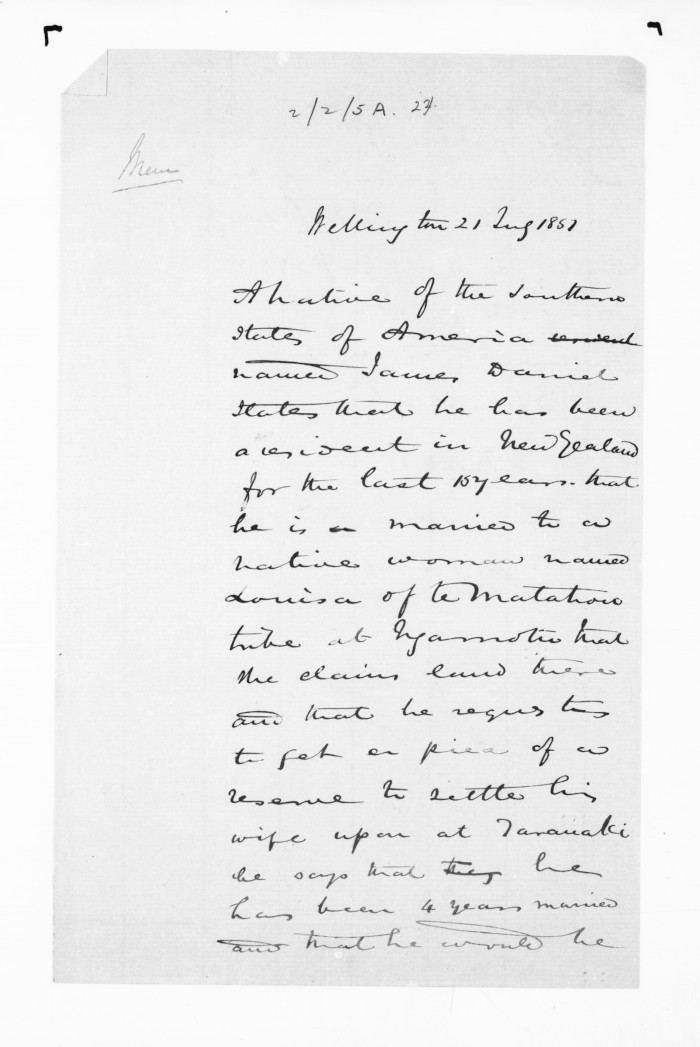 2/2/5A. 24.
Mem
Wellington 21 Aug 1851
A native of the Southern
States of America resident
named James Daniel
States that he has been
a resident in New Zealand
for the last 15 years. that
he is a married to a
native woman named
Louisa of te Matahou
tribe at Ngamotu that
she claims land there
and that he requests
to get a piece of a
reserve to settle his
wife upon at Taranaki
he says that they he
has been 4 years married
and that he would be